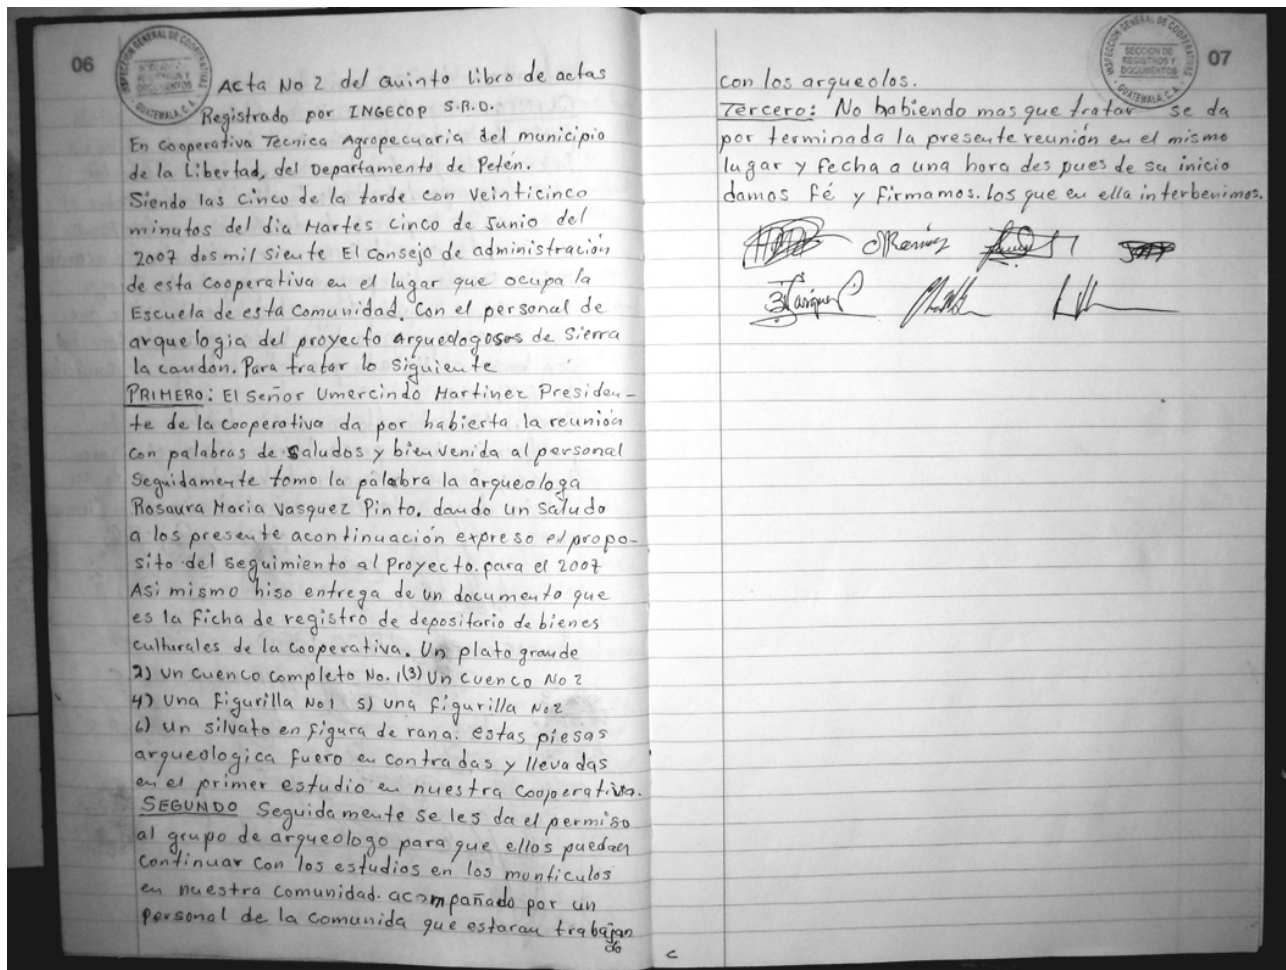 06
INSPECCIÓN GENERAL DE COOPERATIVAS
GUATEMALA, C.A.
Acta No 2 del Quinto libro de actas
Registrado por INGECOP S.R.D.
En cooperativa Tecnica Agropecuaria del municipio
de la Libertad, del Departamento de Petén.
Siendo las cinco de la tarde con veinticinco
minutos del dia Martes cinco de Junio del
2007 dos mil siente El consejo de administración
de esta cooperativa en el lugar que ocupa la
Escuela de esta comunidad. con el personal de
arquelogia del proyecto arqueologosos de Sierra
la candon. Para tratar lo siguiente
PRIMERO: El señor Umercindo Martinez Presiden-
te de la cooperativa da por habierta la reunión
con palabras de saludos y bienvenida al personal
Seguidamente tomo la palabra la arqueologa
Rosaura Maria Vasquez Pinto. dando un saludo
a los presente acontinuación expreso el propo-
sito del seguimiento al Proyecto. para el 2007
Asi mismo hiso entrega de un documento que
es la ficha de registro de depositario de bienes
culturales de la cooperativa. Un plato grande
2) un cuenco completo No. 1 (3) un cuenco No 2
4) una figurilla No 1 5) una figurilla No 2
6) un silvato en figura de rana. estas piesas
arqueologica fuero en contradas y llevadas
en el primer estudio en nuestra cooperativa.
SEGUNDO Seguidamente se les da el permiso
al grupo de arqueologo para que ellos puedan
continuar con los estudios en los monticulos
en nuestra comunidad. acompañado por un
personal de la comunida que estaran trabajan
do
07
INSPECCIÓN GENERAL DE COOPERATIVAS
SECCION DE
REGISTROS Y
DOCUMENTOS
GUATEMALA, C.A.
con los arqueolos.
Tercero: No habiendo mas que tratar se da
por terminada la presente reunión en el mismo
lugar y fecha a una hora des pues de su inicio
damos fé y firmamos. los que en ella interbenimos.